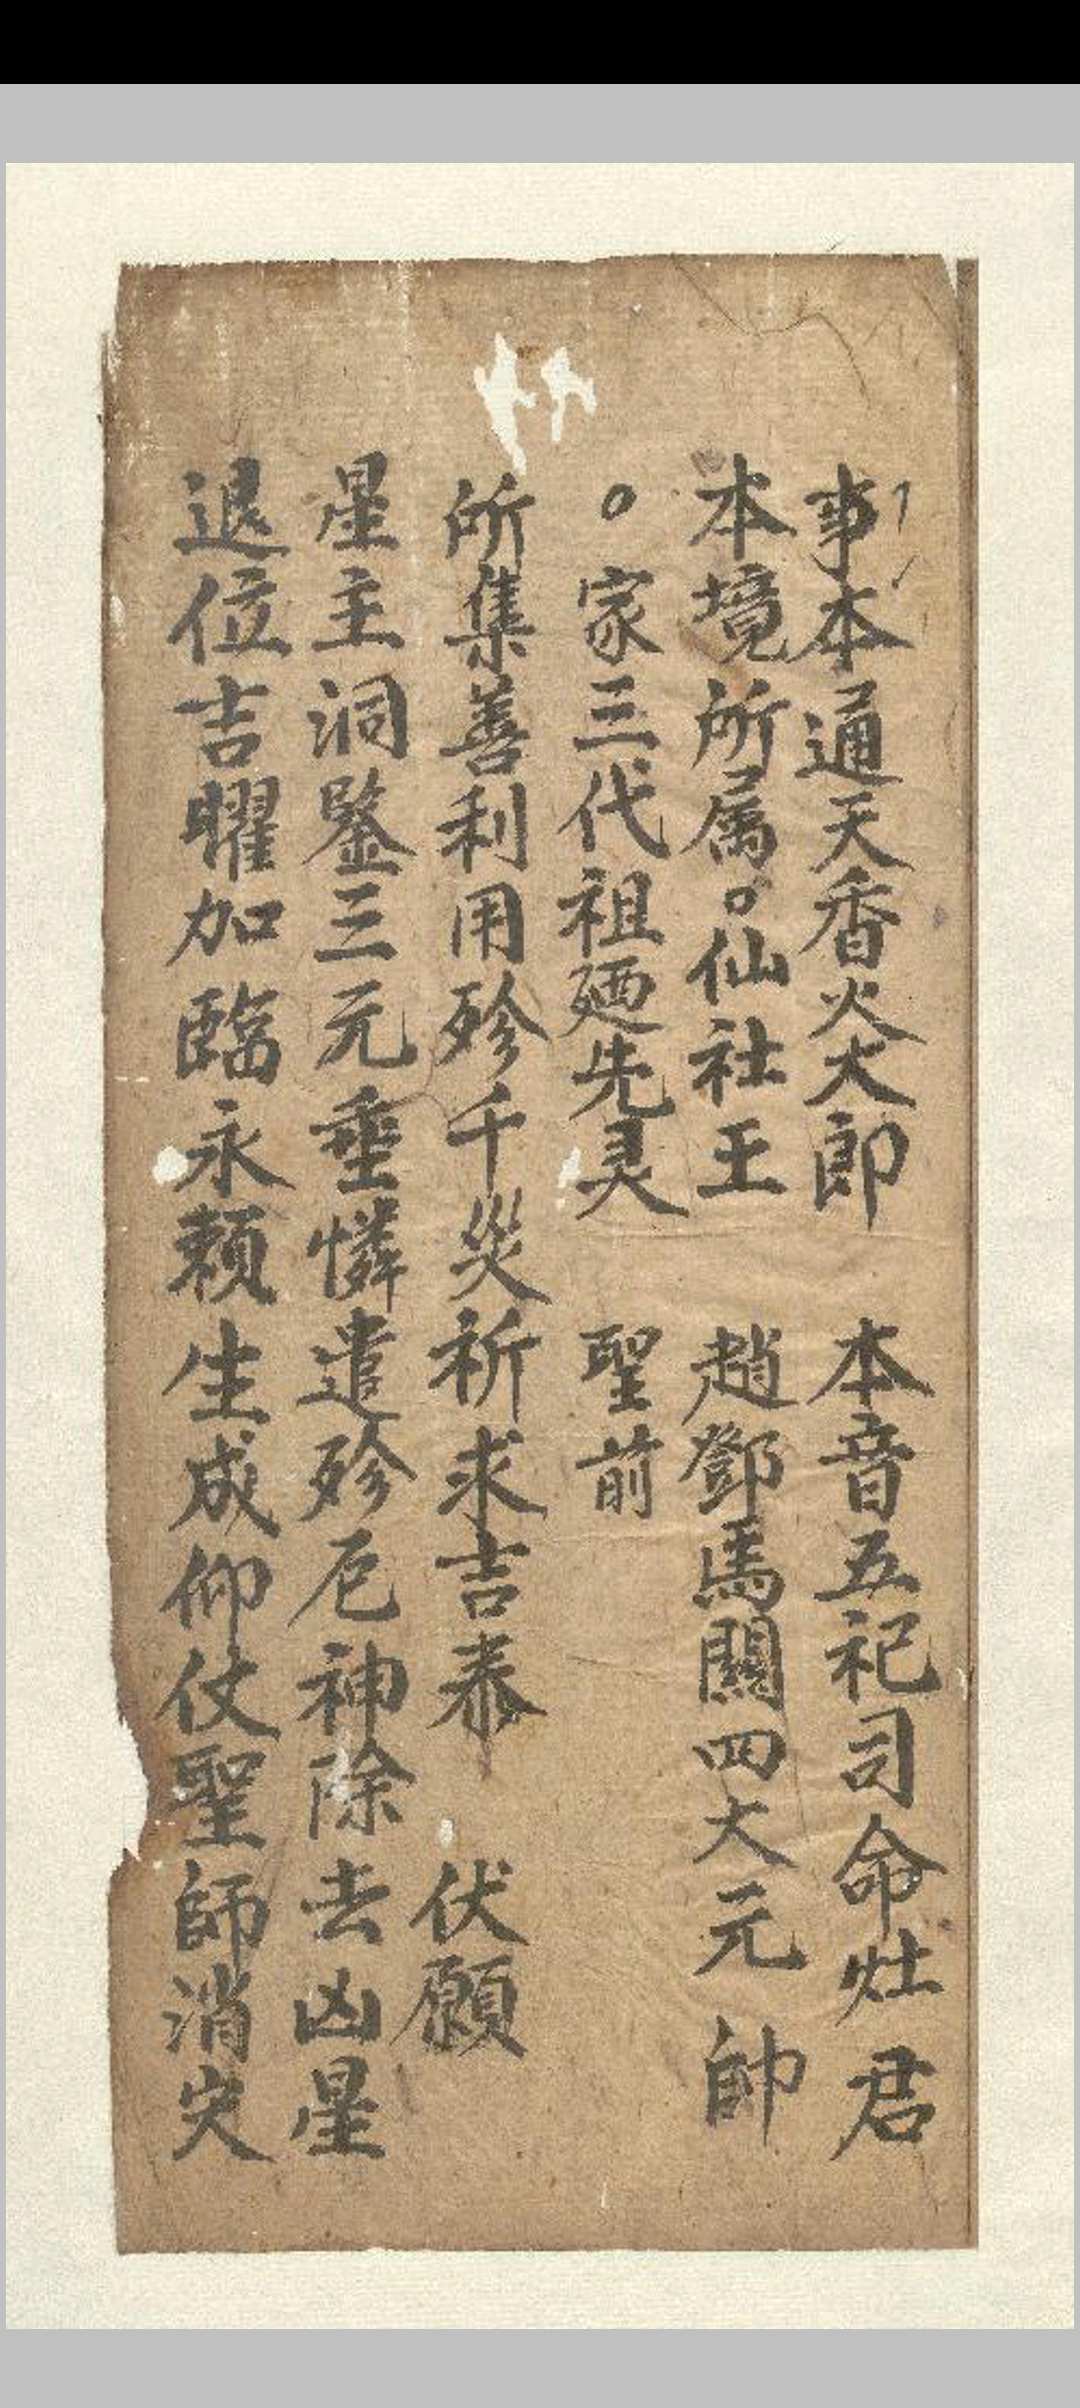 事本通天香火大郎　本音五祀司命灶君
本境所属○仙社王　趙鄧馬關四大元帥
○家三代祖廼先灵　聖前
所集善利用殄千災祈求吉泰　伏願
星主洞鑒三元垂憐遣殄厄神除去凶星
退位吉曜加臨永賴生成仰仗聖師消灾